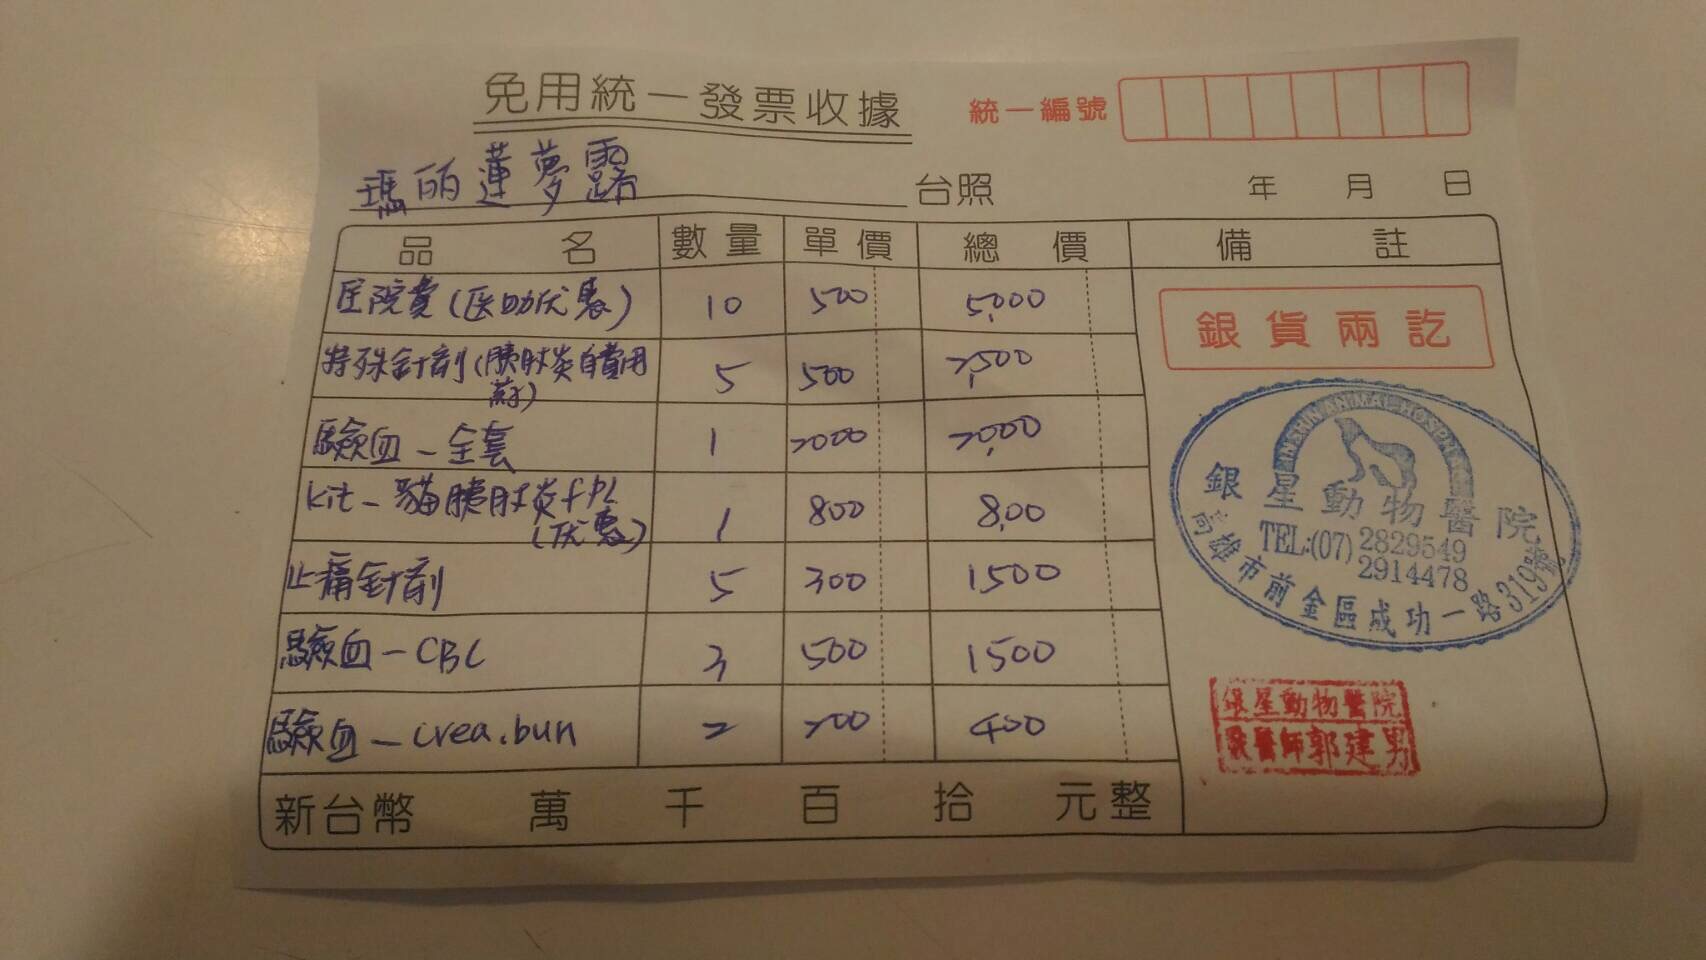 免用統一發票收據
統一編號
瑪丽蓮夢露 台照 年 月 日
品名 數量 單價 總價 備註
院費(医助优惠) 10 500 5,000
特殊針剤(胰臟炎自費用
藥) 5 500 2,500
驗血-全套 1 2000 2,000
kit-貓胰臟炎fPL
(优惠) 1 800 8,00
止痛針剤 5 300 1500
驗血-CBC 3 500 1500
驗血-crea.bun 2 200 400
新台幣 萬 千 百 拾 元整
銀貨兩訖
INSHIN ANIMAL HOSPITAL
銀星動物醫院
TEL:(07)2829549
2914478
高雄市前金區成功一路319號
銀星動物醫院
獸醫師郭建男